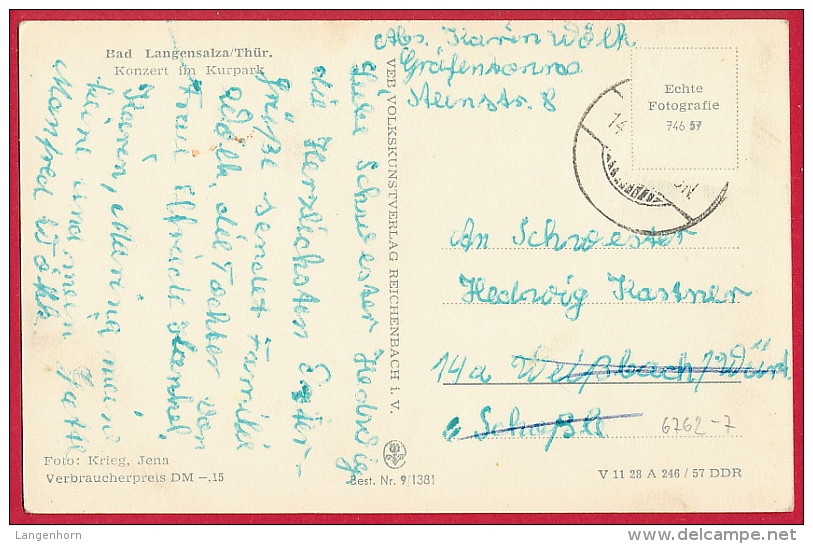 Bad Langensalza/Thür.
Konzert im Kurpark
Liebe Schwester Hedwig
die Herzlichsten Oster-
grüße sendet Familie
Wölk, die Tochter von
Frau Elfriede
Karen, meine
und mein Gatte
Manfred Wölk.
Foto: Krieg, Jena
Verbraucherpreis DM –,15
VEB VOLKSKUNSTVERLAG REICHENBACH i. V.
Best. Nr. 9/1381
Abs. Karin Wölk
Gräfentonna
Steinstr. 8
Echte
Fotografie
746 57
14
An Schwester
Hedwig Kastner
14a Weißbach/Würt.
Schößle
6762-7
V 11 28 A 246 / 57 DDR
Langenhorn
www.delcampe.net